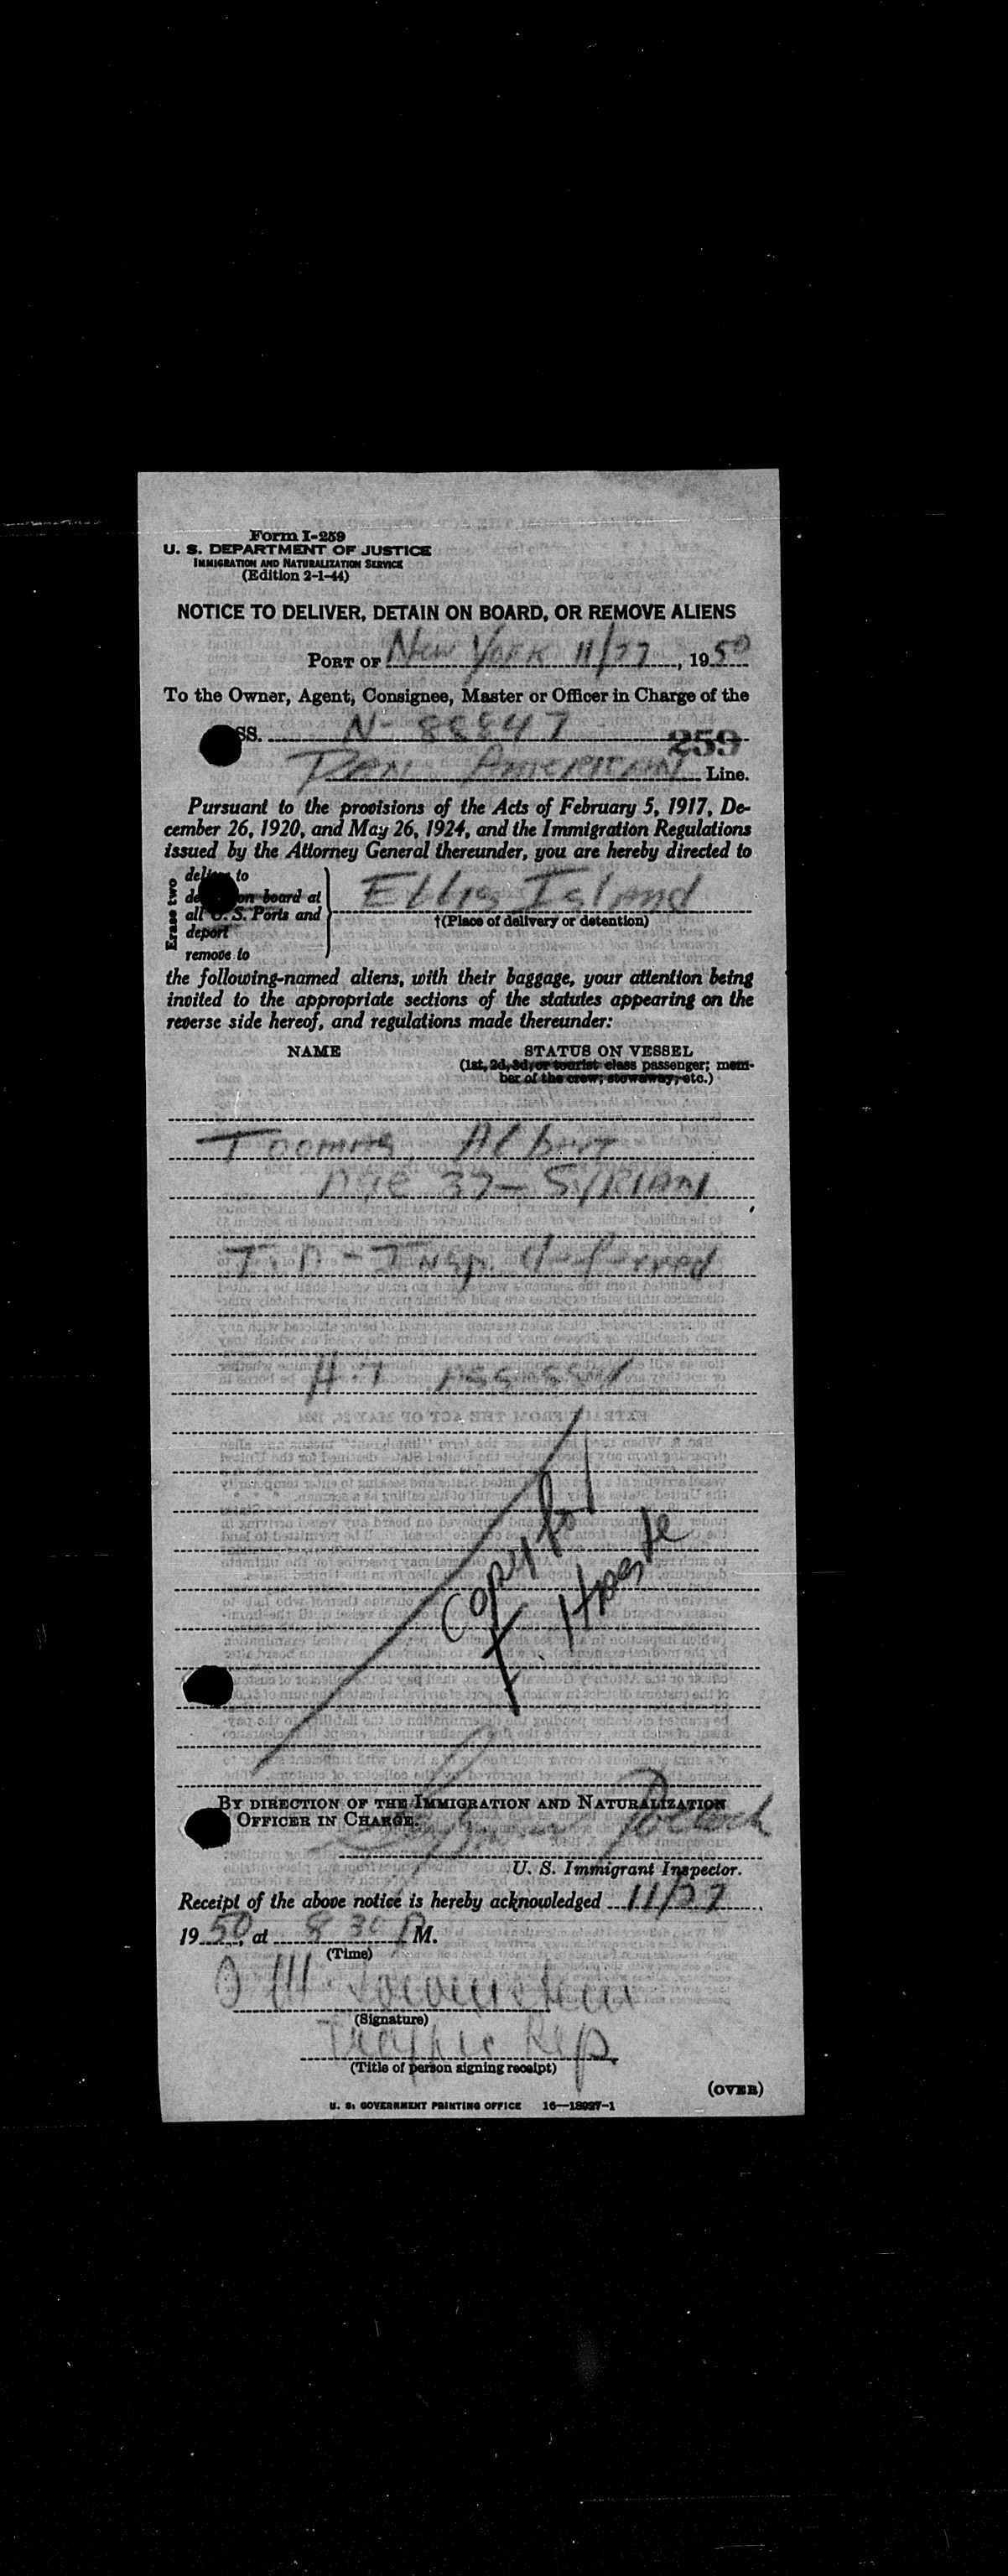 Form I-259
U. S. DEPARTMENT OF JUSTICE
IMMIGRATION AND NATURALIZATION SERVICE
(Edition 2-1-44)
NOTICE TO DELIVER, DETAIN ON BOARD, OR REMOVE ALIENS
PORT OF New York 11/27, 1950
To the Owner, Agent, Consignee, Master or Officer in Charge of the
SS. N-88847
259
Pan American Line.
Pursuant to the provisions of the Acts of February 5, 1917, De-
cember 26, 1920, and May 26, 1924, and the Immigration Regulations
issued by the Attorney General thereunder, you are hereby directed to
Erase two
deliver to
on board at
all U. S. Ports and
deport
remove to
Ellis Island
†(Place of delivery or detention)
the following-named aliens, with their baggage, your attention being
invited to the appropriate sections of the statutes appearing on the
reverse side hereof, and regulations made thereunder:
NAME STATUS ON VESSEL
(1st, 2d, 3d, or tourist class passenger; mem-
ber of the crew, stowaway, etc.)
Toomas, Albert
Age 37 - Syrian
T.D - Insp. deferred
Copy to
F. House
BY DIRECTION OF THE IMMIGRATION AND NATURALIZATION
OFFICER IN CHARGE.
U. S. Immigrant Inspector.
Receipt of the above notice is hereby acknowledged 11/27
1950, at 8 30 P M.
(Time)
(Signature)
Traffic Rep
(Title of person signing receipt)
(OVER)
U. S. GOVERNMENT PRINTING OFFICE 16—18927-1